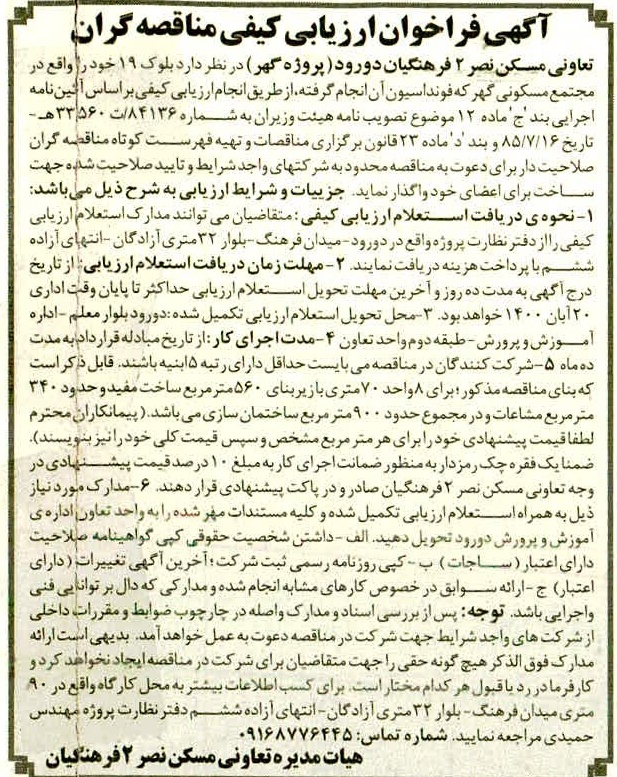 آگهی فراخوان ارزیابی کیفی مناقصه گران
تعاونی مسکن نصر ۲ فرهنگیان دورود (پروژه گهر) در نظر دارد بلوک ۱۹ خود را واقع در
مجتمع مسکونی گهر که فونداسیون آن انجام گرفته، از طریق انجام ارزیابی کیفی بر اساس آئین نامه
اجرایی بند 'ج' ماده ۱۲ موضوع تصویب نامه هیئت وزیران به شماره ۸۴۱۳۶/ت ۳۳۵۶۰هـ-
تاریخ ۸۵/۷/۱۶ و بند 'د' ماده ۲۳ قانون برگزاری مناقصات و تهیه فهرست کوتاه مناقصه گران
صلاحیت دار برای دعوت به مناقصه محدود به شرکتهای واجد شرایط و تایید صلاحیت شده جهت
ساخت برای اعضای خود واگذار نماید. جزییات و شرایط ارزیابی به شرح ذیل می باشد:
۱- نحوه ی دریافت استعلام ارزیابی کیفی: متقاضیان می توانند مدارک استعلام ارزیابی
کیفی را از دفتر نظارت پروژه واقع در دورود-میدان فرهنگ-بلوار ۳۲متری آزادگان -انتهای آزاده
ششم با پرداخت هزینه دریافت نمایند. ۲-مهلت زمان دریافت استعلام ارزیابی: از تاریخ
درج آگهی به مدت ده روز و آخرین مهلت تحویل استعلام ارزیابی حداکثر تا پایان وقت اداری
۲۰ آبان ۱۴۰۰ خواهد بود. ۳-محل تحویل استعلام ارزیابی تکمیل شده: دورود بلوار معلم -اداره
آموزش و پرورش-طبقه دوم واحد تعاون ۴-مدت اجرای کار: از تاریخ مبادله قرارداد به مدت
ده ماه ۵-شرکت کنندگان در مناقصه می بایست حداقل دارای رتبه ۵ابنیه باشند. قابل ذکر است
که بنای مناقصه مذکور؛ برای ۸واحد ۷۰متری با زیربنای ۵۶۰متر مربع ساخت مفید و حدود ۳۴۰
متر مربع مشاعات و در مجموع حدود ۹۰۰متر مربع ساختمان سازی می باشد. (پیمانکاران محترم
لطفا قیمت پیشنهادی خود را برای هر متر مربع مشخص و سپس قیمت کلی خود را نیز بنویسند).
ضمنا یک فقره چک رمزدار به منظور ضمانت اجرای کار به مبلغ ۱۰ درصد قیمت پیشنهادی در
وجه تعاونی مسکن نصر ۲ فرهنگیان صادر و در پاکت پیشنهادی قرار دهند. ۶-مدارک مورد نیاز
ذیل به همراه استعلام ارزیابی تکمیل شده و کلیه مستندات مهر شده را به واحد تعاون اداره ی
آموزش و پرورش دورود تحویل دهید. الف-داشتن شخصیت حقوقی کپی گواهینامه صلاحیت
دارای اعتبار (ساجات) ب-کپی روزنامه رسمی ثبت شرکت؛ آخرین آگهی تغییرات (دارای
اعتبار) ج-ارائه سوابق در خصوص کارهای مشابه انجام شده و مدارکی که دال بر توانایی فنی
واجرایی باشد. توجه: پس از بررسی اسناد و مدارک واصله در چارچوب ضوابط و مقررات داخلی
از شرکت های واجد شرایط جهت شرکت در مناقصه دعوت به عمل خواهد آمد. بدیهی است ارائه
مدارک فوق الذکر هیچ گونه حقی را جهت متقاضیان برای شرکت در مناقصه ایجاد نخواهد کرد و
کارفرما در رد یا قبول هر کدام مختار است. برای کسب اطلاعات بیشتر به محل کارگاه واقع در ۹۰
متری میدان فرهنگ-بلوار ۳۲متری آزادگان-انتهای آزاده ششم دفتر نظارت پروژه مهندس
حمیدی مراجعه نمایید. شماره تماس: ۰۹۱۶۸۷۷۶۴۴۵
هیات مدیره تعاونی مسکن نصر ۲ فرهنگیان